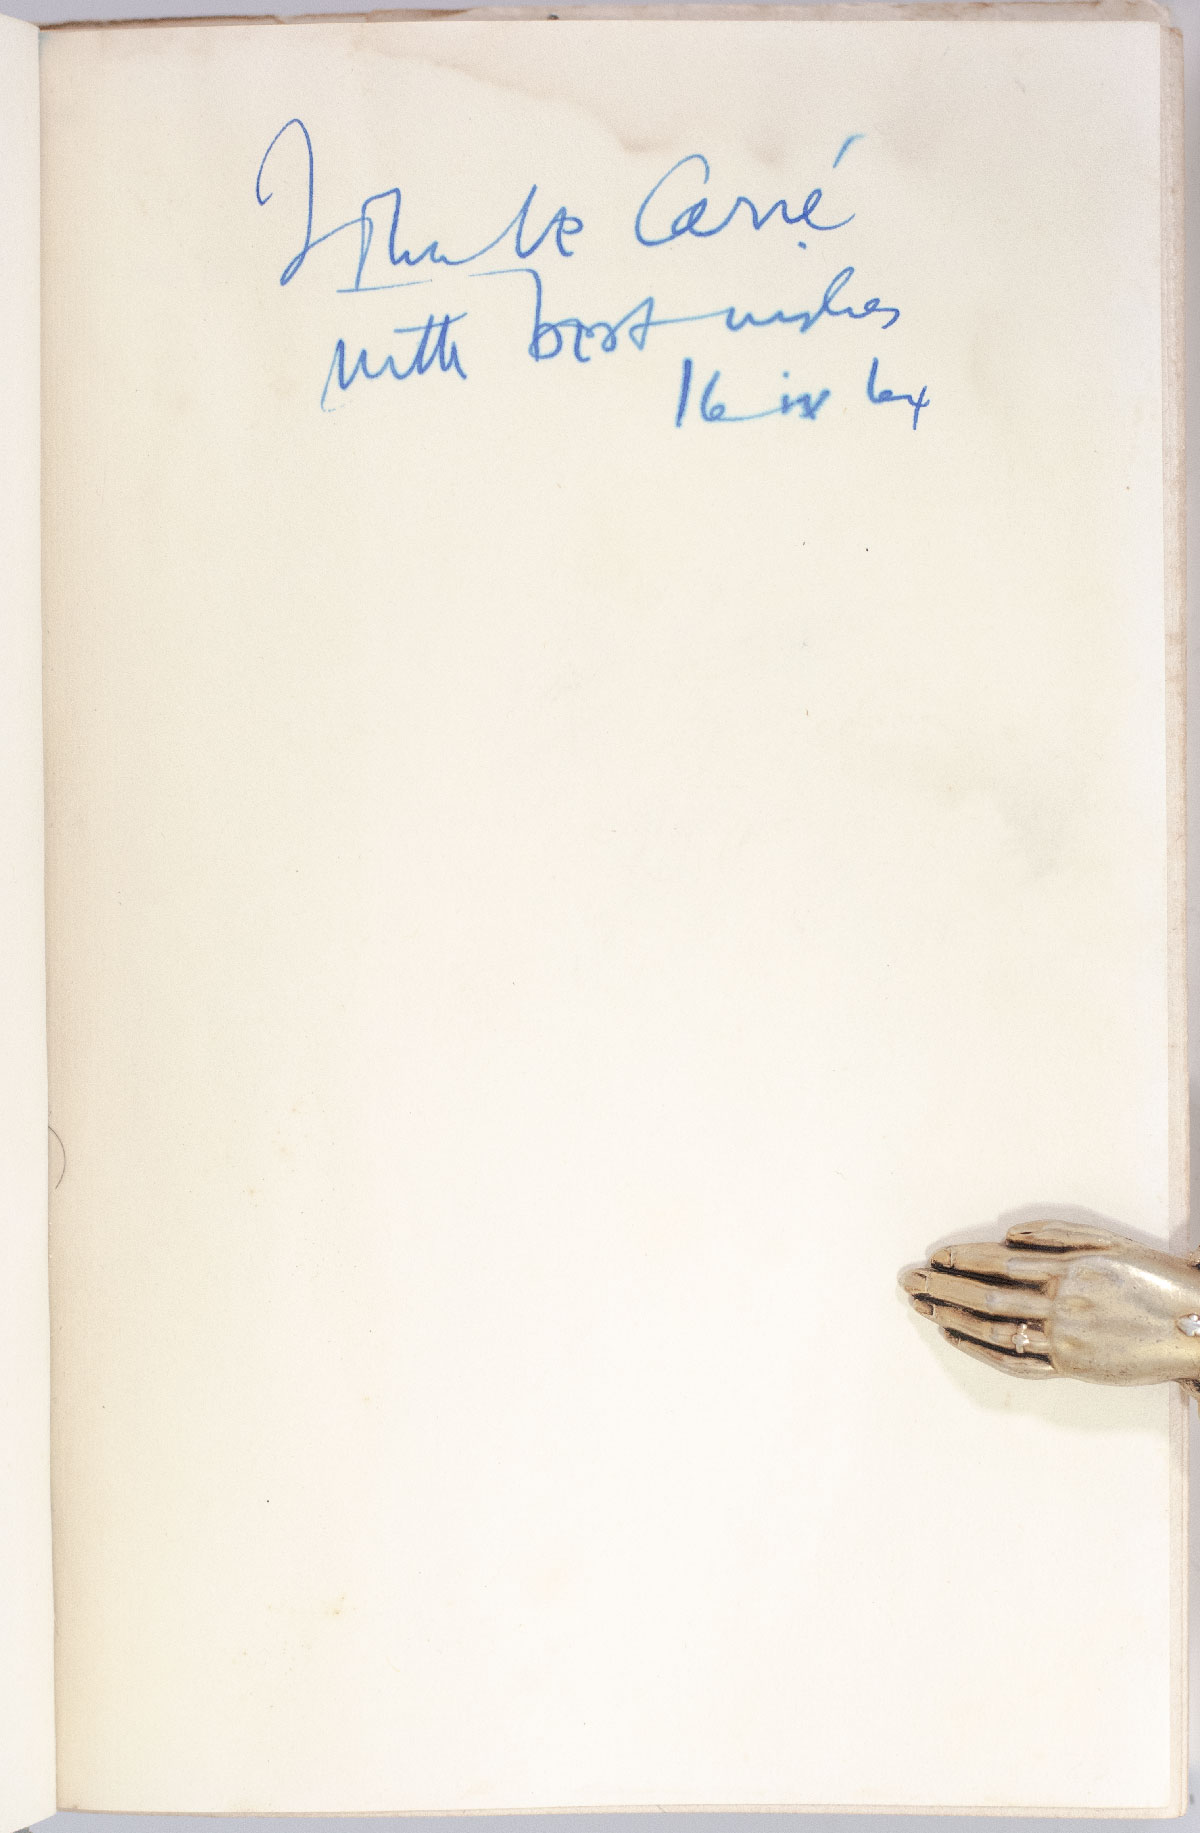 John le Carré
with best wishes
16 ix 64